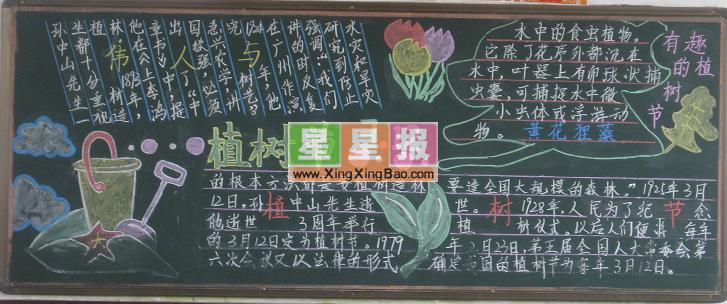 孙中山先生一
生都十分重视
植树造
林。1893年,
他在《上李鸿
章书》中,提
出"中
国欲强,必须
急兴农学,讲
究树艺"。
1924年,他
在广州作演
讲的时反复
强调:"我们
研究到防止
水灾和旱灾
伟人与
水中的食虫植物。
它除了花序外都沉在
水中,叶器上有卵球状捕
虫囊,可捕捉水中微
小虫体或浮游动
物。黄花狸藻
有趣的植树节
植树
星星报
www.XingXingBao.com
的根本方法
要造全国大规模的森林。"1925年3月
12日,孙中山先生逝世。1928年,人民为了纪念
他逝世3周年举行植树仪式。以后人们便将每年
的3月12日定为植树节。1979年2月23日,第五届全国人大常委会第
六次会议又以法律的形式确定我国的植树节为每年3月12日。
植 树 节